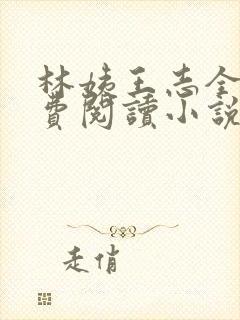 林姨王志全
費閱讀小說
走俏